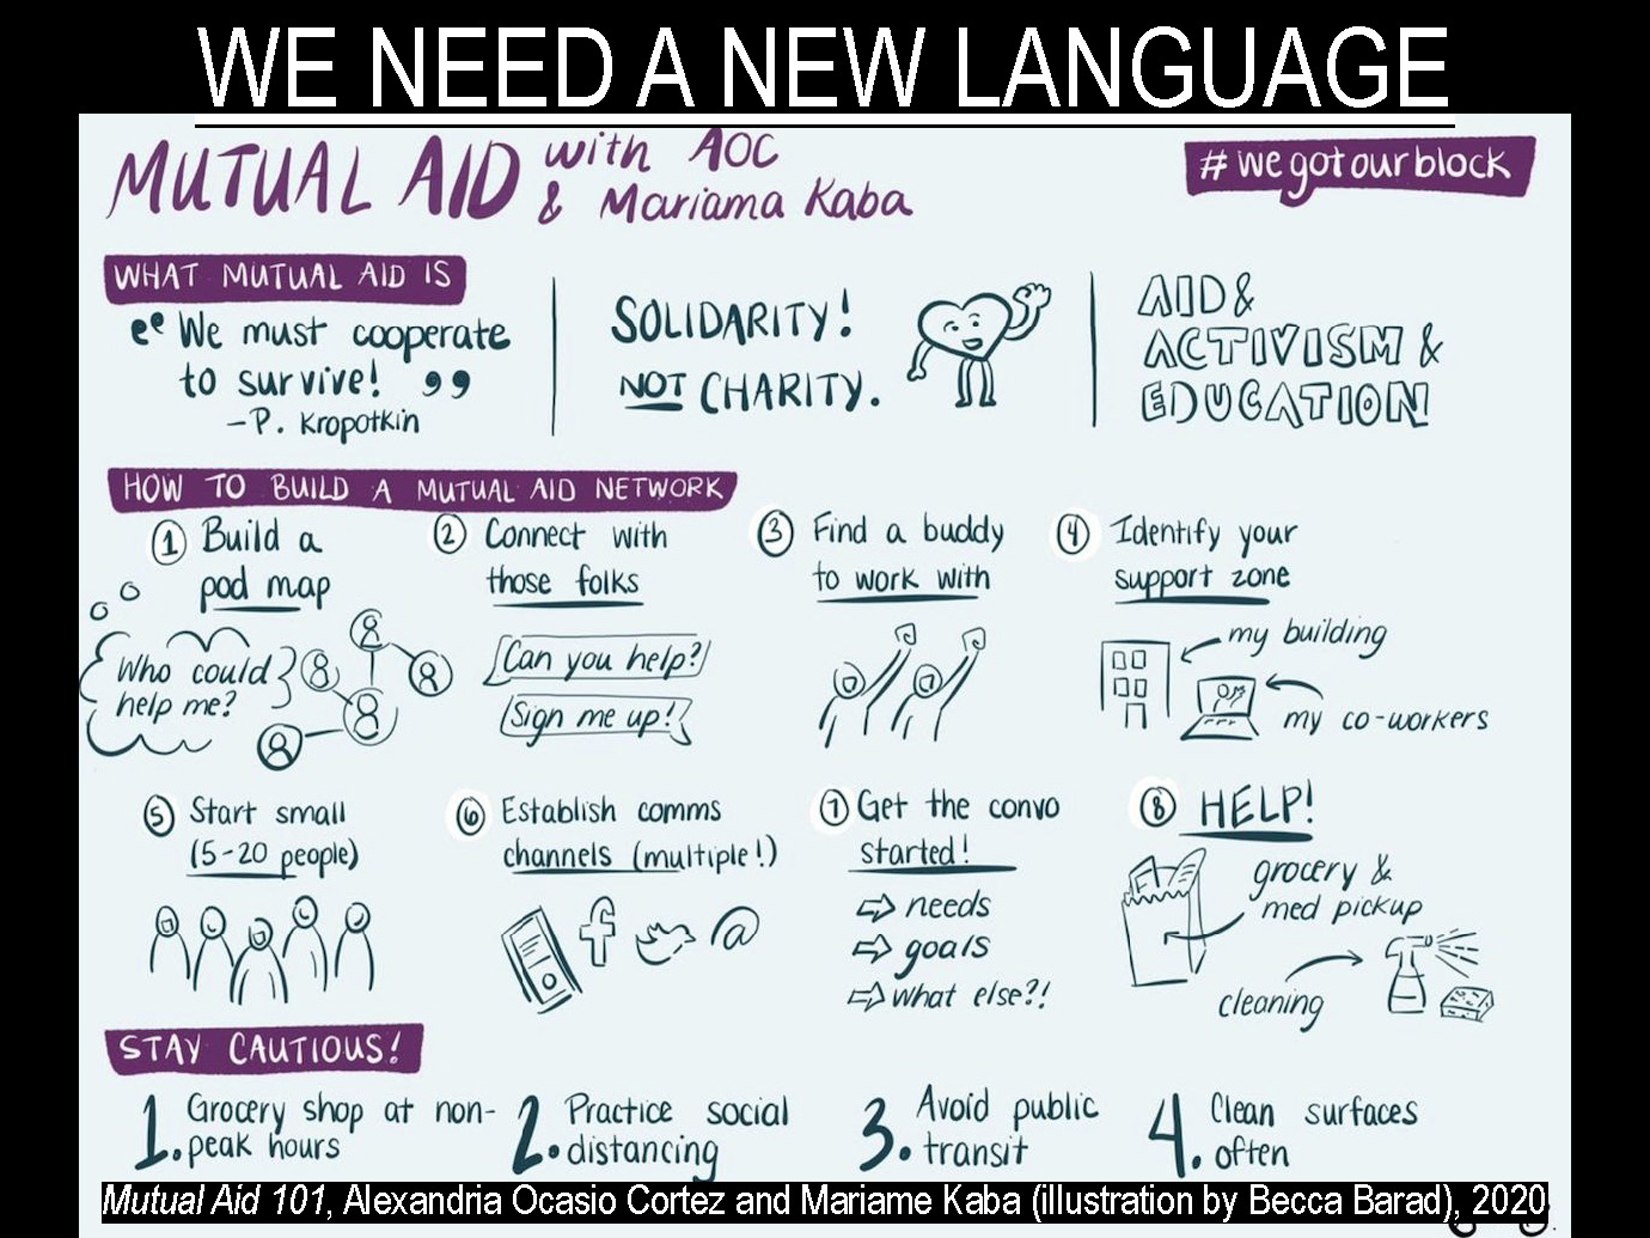 WE NEED A NEW LANGUAGE
MUTUAL AID with AOC
& Mariama Kaba
#wegotourblock
WHAT MUTUAL AID IS
"We must cooperate
to survive!"
-P. Kropotkin
SOLIDARITY!
NOT CHARITY.
AID &
ACTIVISM &
EDUCATION
HOW TO BUILD A MUTUAL AID NETWORK
1 Build a
pod map
Who could
help me?
2 Connect with
those folks
Can you help?
Sign me up!
3 Find a buddy
to work with
4 Identify your
support zone
my building
my co-workers
5 Start small
(5-20 people)
6 Establish comms
channels (multiple!)
7 Get the convo
started!
⇨ needs
⇨ goals
⇨ what else?!
8 HELP!
grocery &
med pickup
cleaning
STAY CAUTIOUS!
1. Grocery shop at non-
peak hours
2. Practice social
distancing
3. Avoid public
transit
4. Clean surfaces
often
Mutual Aid 101, Alexandria Ocasio Cortez and Mariame Kaba (illustration by Becca Barad), 2020